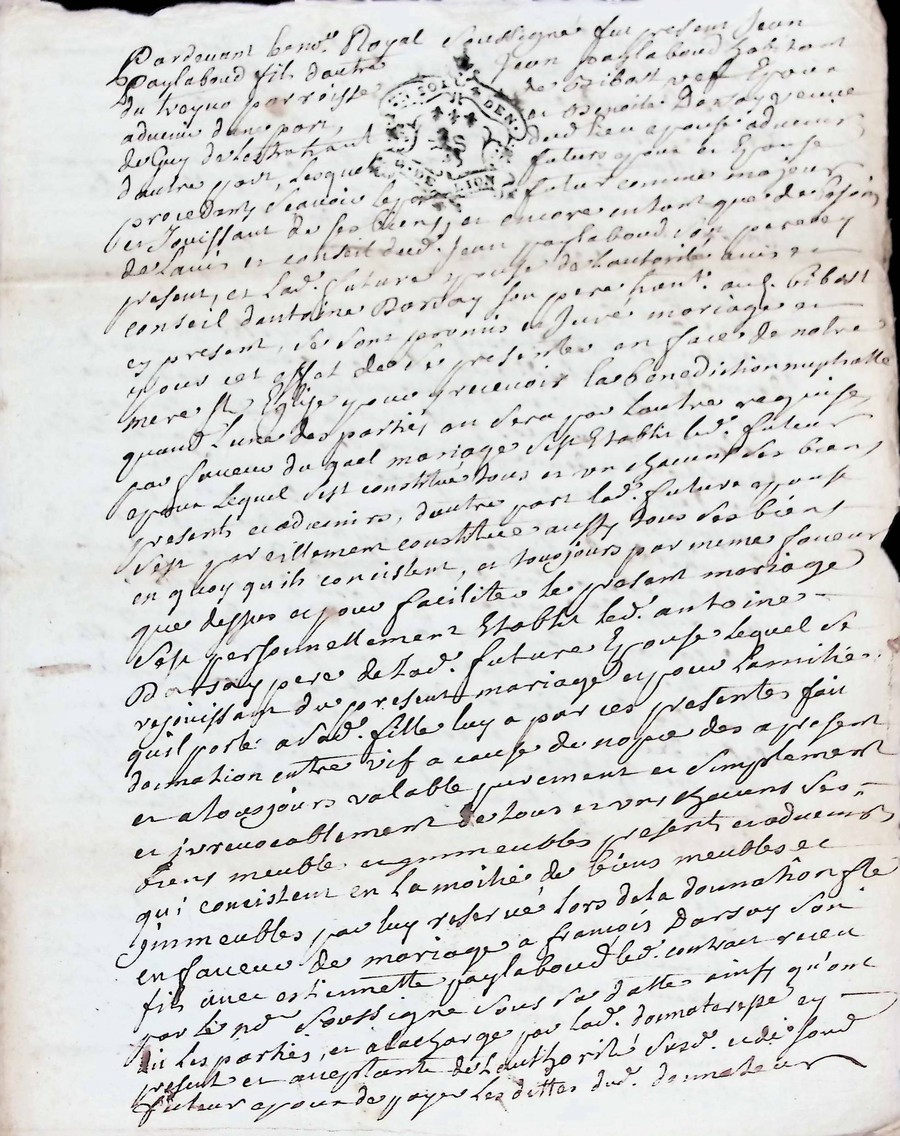 Pardevant le no.re Royal soussigné fut present Jean
Paylaboud fils d'autre Jean paylaboud habitant
du voyno parroisse de Ribast veff Epoux
advenir d'une part, et Benoite Darsay veuve
de Guy de Lestrat dud lieu epouse advenir
d'autre part, Lesquels futurs epoux et Epouse
procedant sçavoir led futur comme majeur
et Jouissant de ses biens, et encore entant que de besoin
de L'avis et conseil dud. Jean paylaboud son pere cy
present, et Lad. future epouse de L'autorité avis et
conseil d'antoine Darsay son pere habt. aud. Ribast
cy present, se sont promis et Juré mariage et
pour cet effet de se presenter en face de notre
mere ste Eglise pour y recevoir La benediction nuptialle
quand L'une des parties en sera par Lautre requise,
par faveur du quel mariage s'est Etably led. futur
epoux Lequel s'est constitué tous et un chacuns ses biens
presents et advenirs, d'autre part lad. future epouse
s'est pareillement constituée aussy tous ses biens
en quoy qu'ils consistent, et toujours par meme faveur
que dessus et pour faciliter le present mariage
s'est personnellement Etably led. antoine
Darsay pere de Lad. future Epouse Lequel se
rejouissant du present mariage et pour Lamitié
qu'il porte a Sad. fille luy a par ces presentes fait
donnation entre vif a cause de nopce des a present
et a toujours valable purement et simplement
et irrevocablement de tous et uns chacuns ses
biens meuble et immeubles presents et advenirs
qui consistent en La moitié de biens meubles et
immeubles par luy reservé lors de la donnation fte
en faveur de mariage a francois Darsay son
fils avec estiennette paylaboud led. contract receu
par le nre soussigné sous sa datte ainsy qu'ont
dit les parties, et a la charge par lad. donnateresse cy
present et acceptante de L'authorité susd. et de sond
futur epoux de payer Les dettes dud. donnateur
GEN.
DE LION